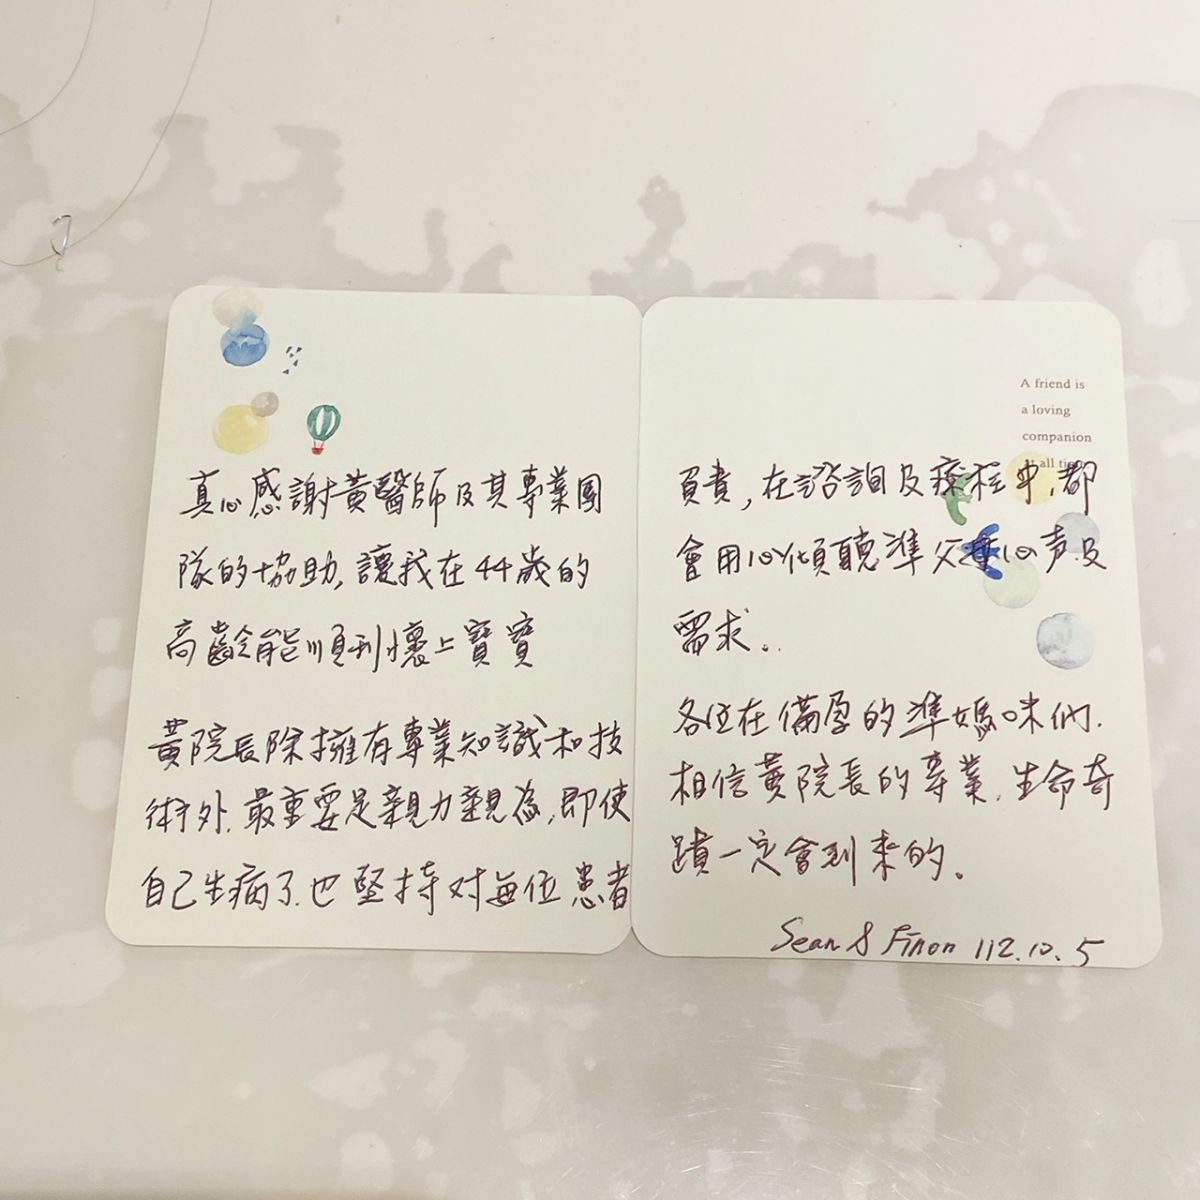 真心感謝黃醫師及其專業團
隊的協助,讓我在44歲的
高齡能順利懷上寶寶
黃院長除擁有專業知識和技
術外,最重要是親力親為,即使
自己生病了,也堅持對每位患者
A friend is
a loving
companion
at all times
負責,在諮詢及療程中,都
會用心傾聽準父母心声及
需求..
各位在備孕的準媽咪們.
相信黃院長的專業,生命奇
蹟一定會到來的。
Sean & Finon 112.10.5